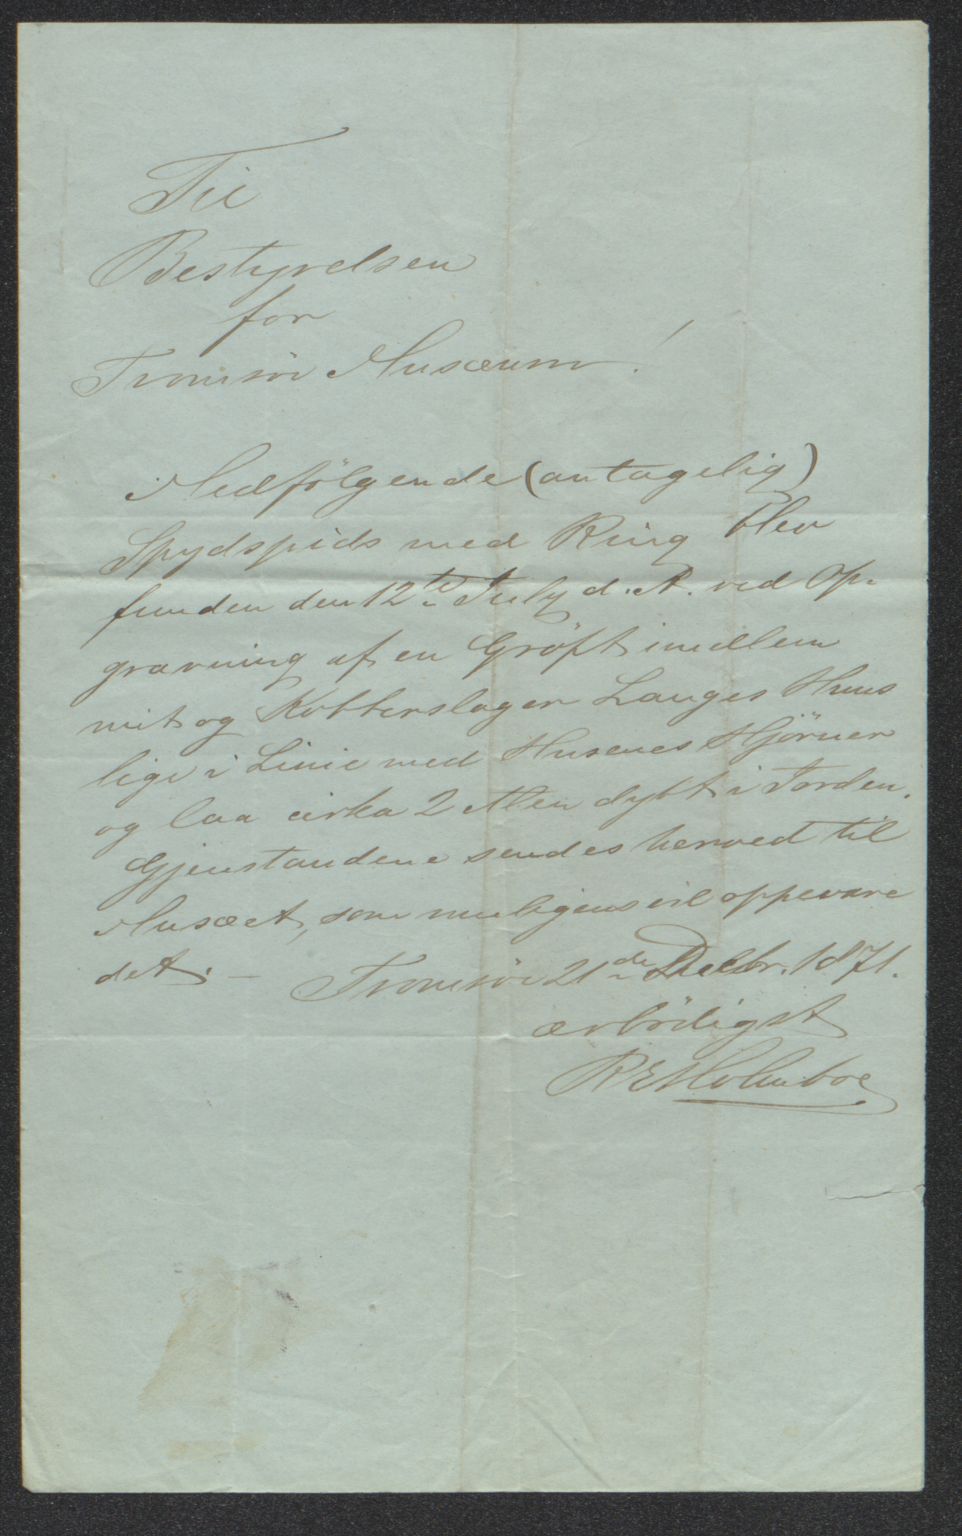 Til
Bestyrelsen
for
Tromsöe Musæum!
Medfölgende (antagelig)
Spydspids med Ring blev
funden den 12te July d. A. ved Op-
gravning af en Gröft imellem
mit og Kobberslager Langes Huus
lige i Linie med Husenes Hjörner
og laa cirka 2 Alen dybt i Jorden.
Gjenstandene sendes herved til
Musæet, som muligens vil oppevare
det. –
Tromsöe 21de Decbr. 1871.
ærbödigst
R E Holmboe